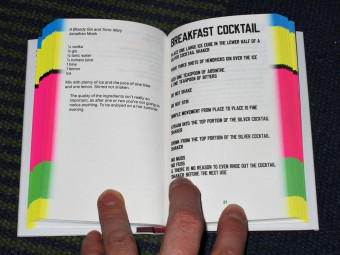 A Bloody Gin and Tonic Mary
Jonathan Monk
½ vodka
½ gin
½ tonic water
½ tomato juice
1 lime
1 lemon
Ice
Mix with plenty of ice and the juice of one lime
and one lemon. Stirred not shaken.
The quality of the ingredients isn't really so
important, as after one or two you're not going to
notice anything. To be enjoyed on a hot summer's
evening.
BREAKFAST COCKTAIL
PLACE ONE LARGE ICE CUBE IN THE LOWER HALF OF A
SILVER COCKTAIL SHAKER
POUR THREE SHOTS OF HENDRICKS GIN OVER THE ICE
ADD ONE TEASPOON OF ABSINTHE
& ONE TEASPOON OF BITTERS
DO NOT SHAKE
DO NOT STIR
SIMPLE MOVEMENT FROM PLACE TO PLACE IS FINE
STRAIN INTO THE TOP PORTION OF THE SILVER COCKTAIL
SHAKER
DRINK FROM THE TOP PORTION OF THE SILVER COCKTAIL
SHAKER
NO MUSS
NO FUSS
& THERE IS NO REASON TO EVEN RINSE OUT THE COCKTAIL
SHAKER BEFORE THE NEXT USE